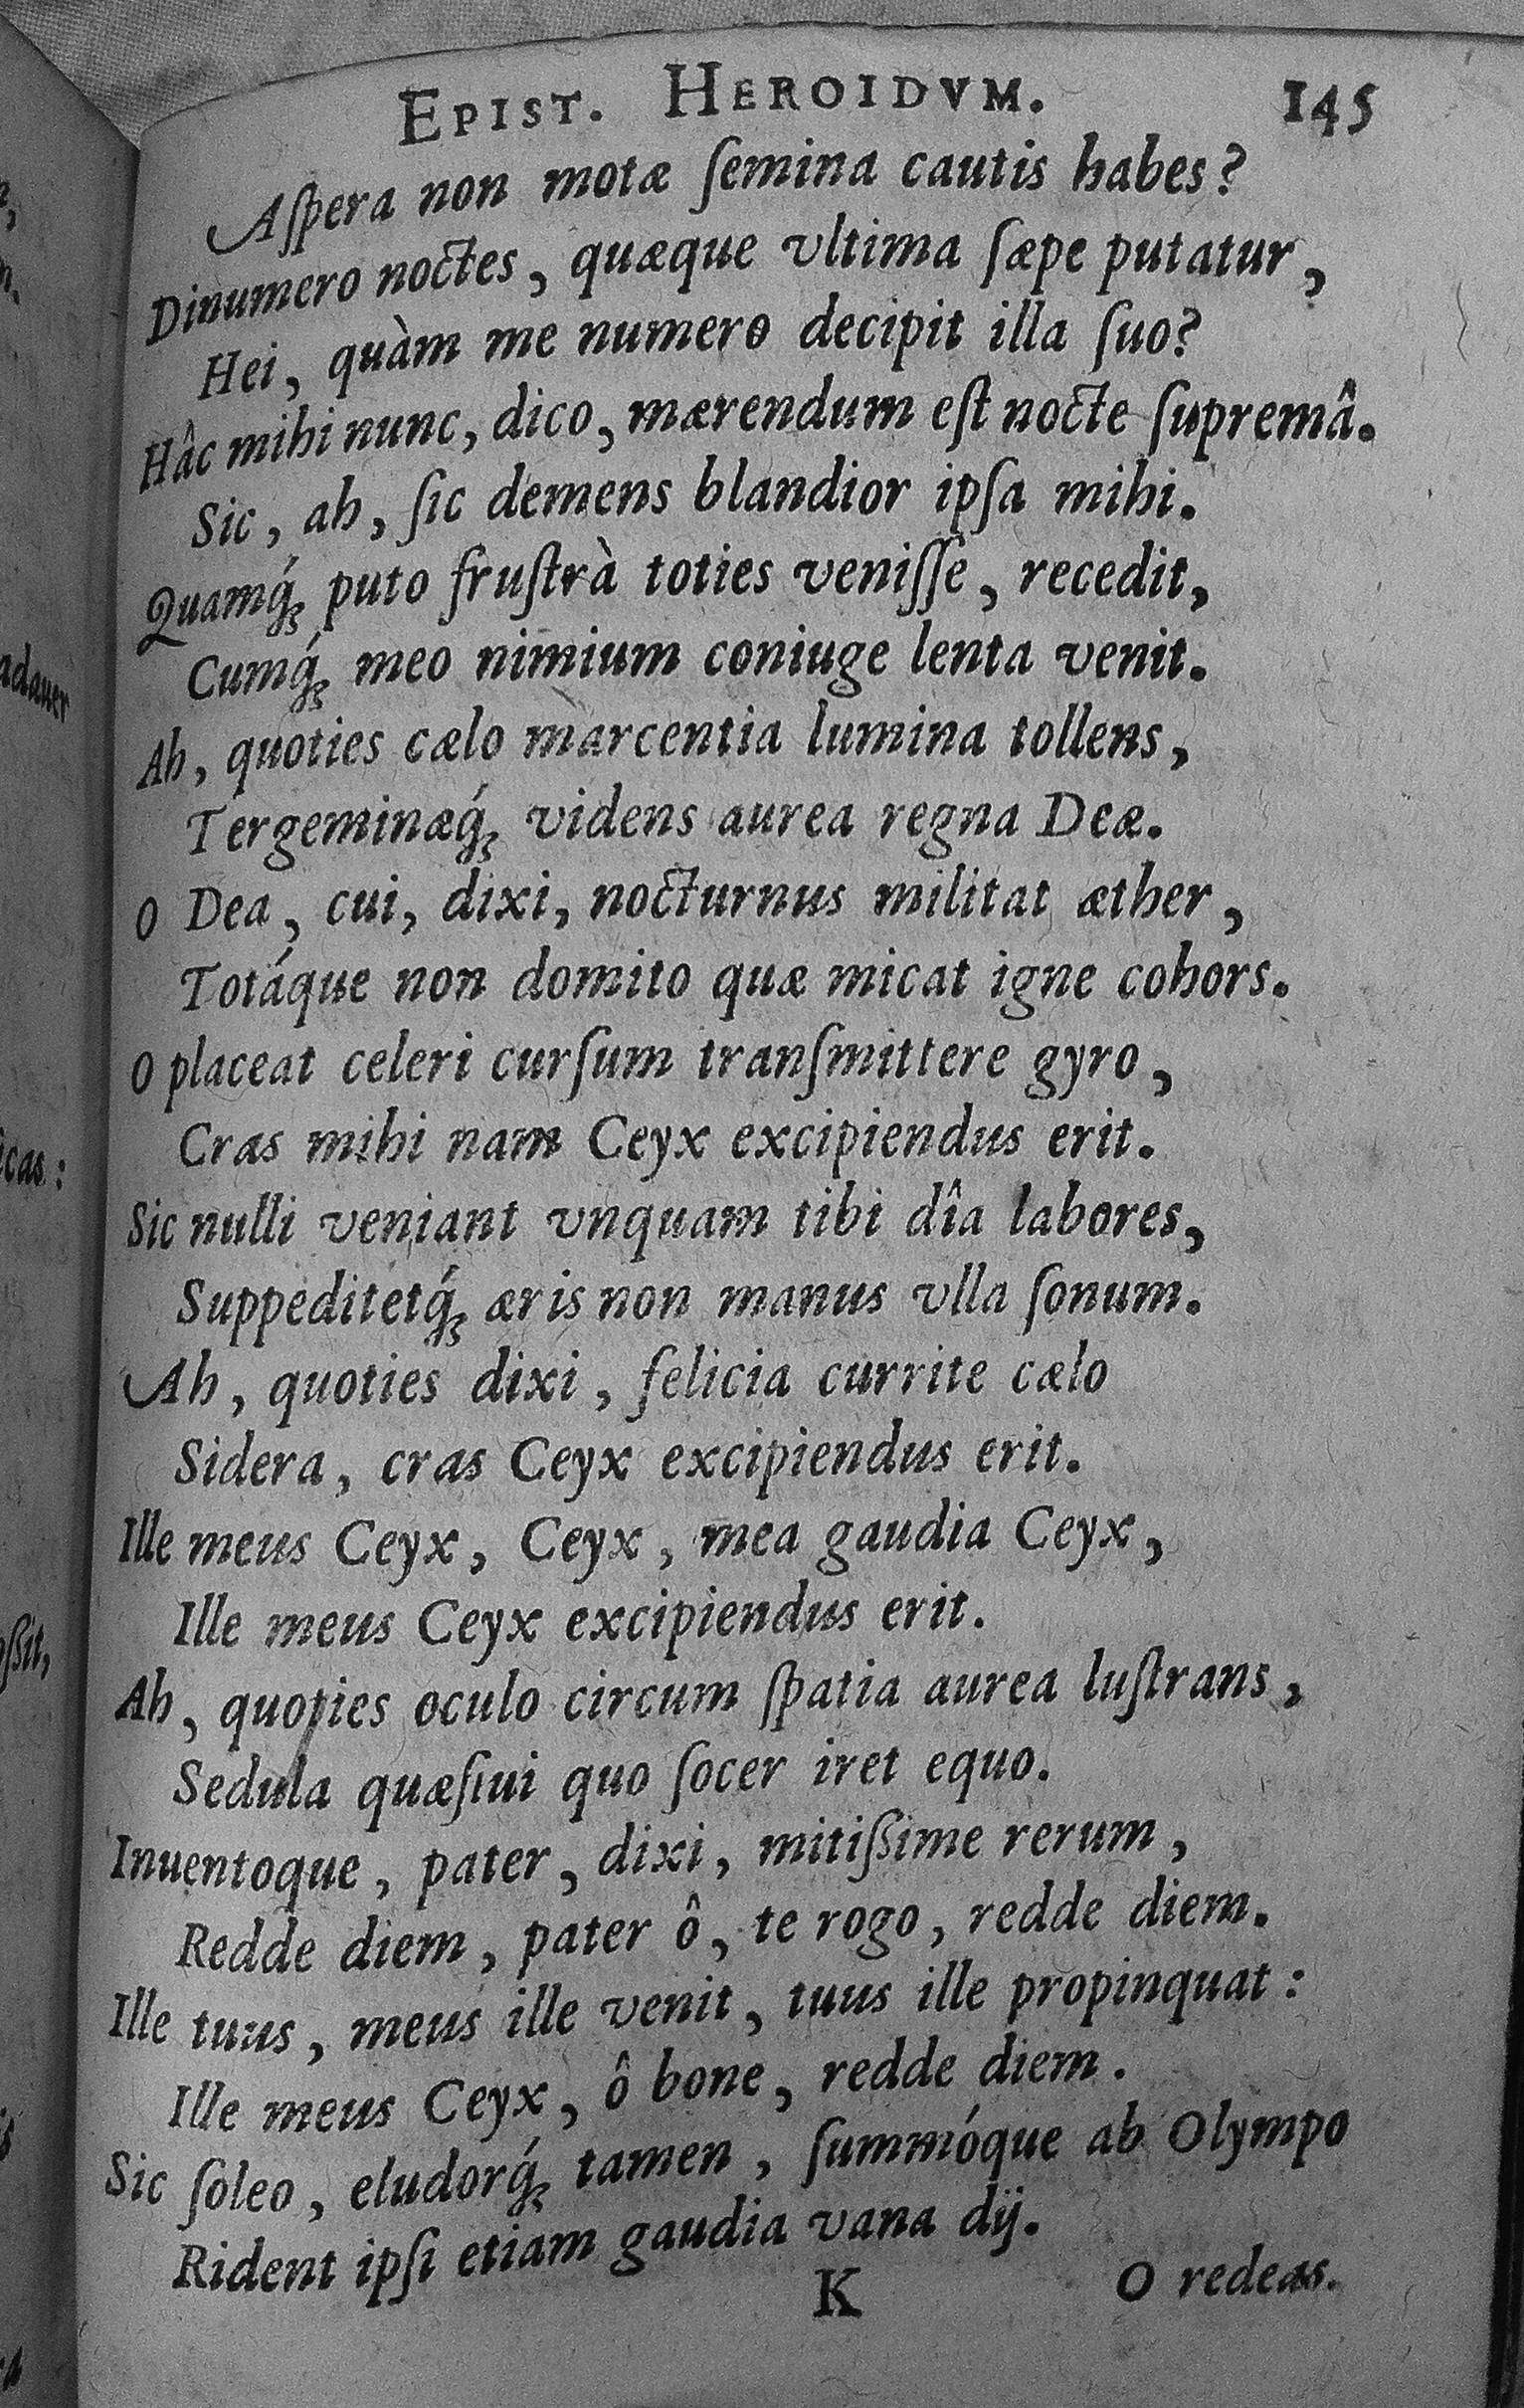 EPIST. HEROIDVM. 145
Aſpera non motæ ſemina cautis habes?
Dinumero noctes, quæque vltima ſæpe putatur,
Hei, quàm me numero decipit illa ſuo?
Hâc mihi nunc, dico, mærendum eſt nocte ſupremâ.
Sic, ah, ſic demens blandior ipſa mihi.
Quamq́ꝫ puto fruſtrà toties veniſſe, recedit,
Cumq́ꝫ meo nimium coniuge lenta venit.
Ah, quoties cælo marcentia lumina tollens,
Tergeminæq́ꝫ videns aurea regna Deæ.
O Dea, cui, dixi, nocturnus militat æther,
Totáque non domito quæ micat igne cohors.
O placeat celeri curſum tranſmittere gyro,
Cras mihi nam Ceyx excipiendus erit.
Sic nulli veniant vnquam tibi dîa labores,
Suppeditetq́ꝫ æris non manus vlla ſonum.
Ah, quoties dixi, felicia currite cælo
Sidera, cras Ceyx excipiendus erit.
Ille meus Ceyx, Ceyx, mea gaudia Ceyx,
Ille meus Ceyx excipiendus erit.
Ah, quoties oculo circum ſpatia aurea luſtrans,
Sedula quæſiui quo ſocer iret equo.
Inuentoque, pater, dixi, mitiſsime rerum,
Redde diem, pater ô, te rogo, redde diem.
Ille tuus, meus ille venit, tuus ille propinquat:
Ille meus Ceyx, ô bone, redde diem.
Sic ſoleo, eludorq́ꝫ tamen, ſummóque ab Olympo
Rident ipſi etiam gaudia vana dij.
K O redeas.